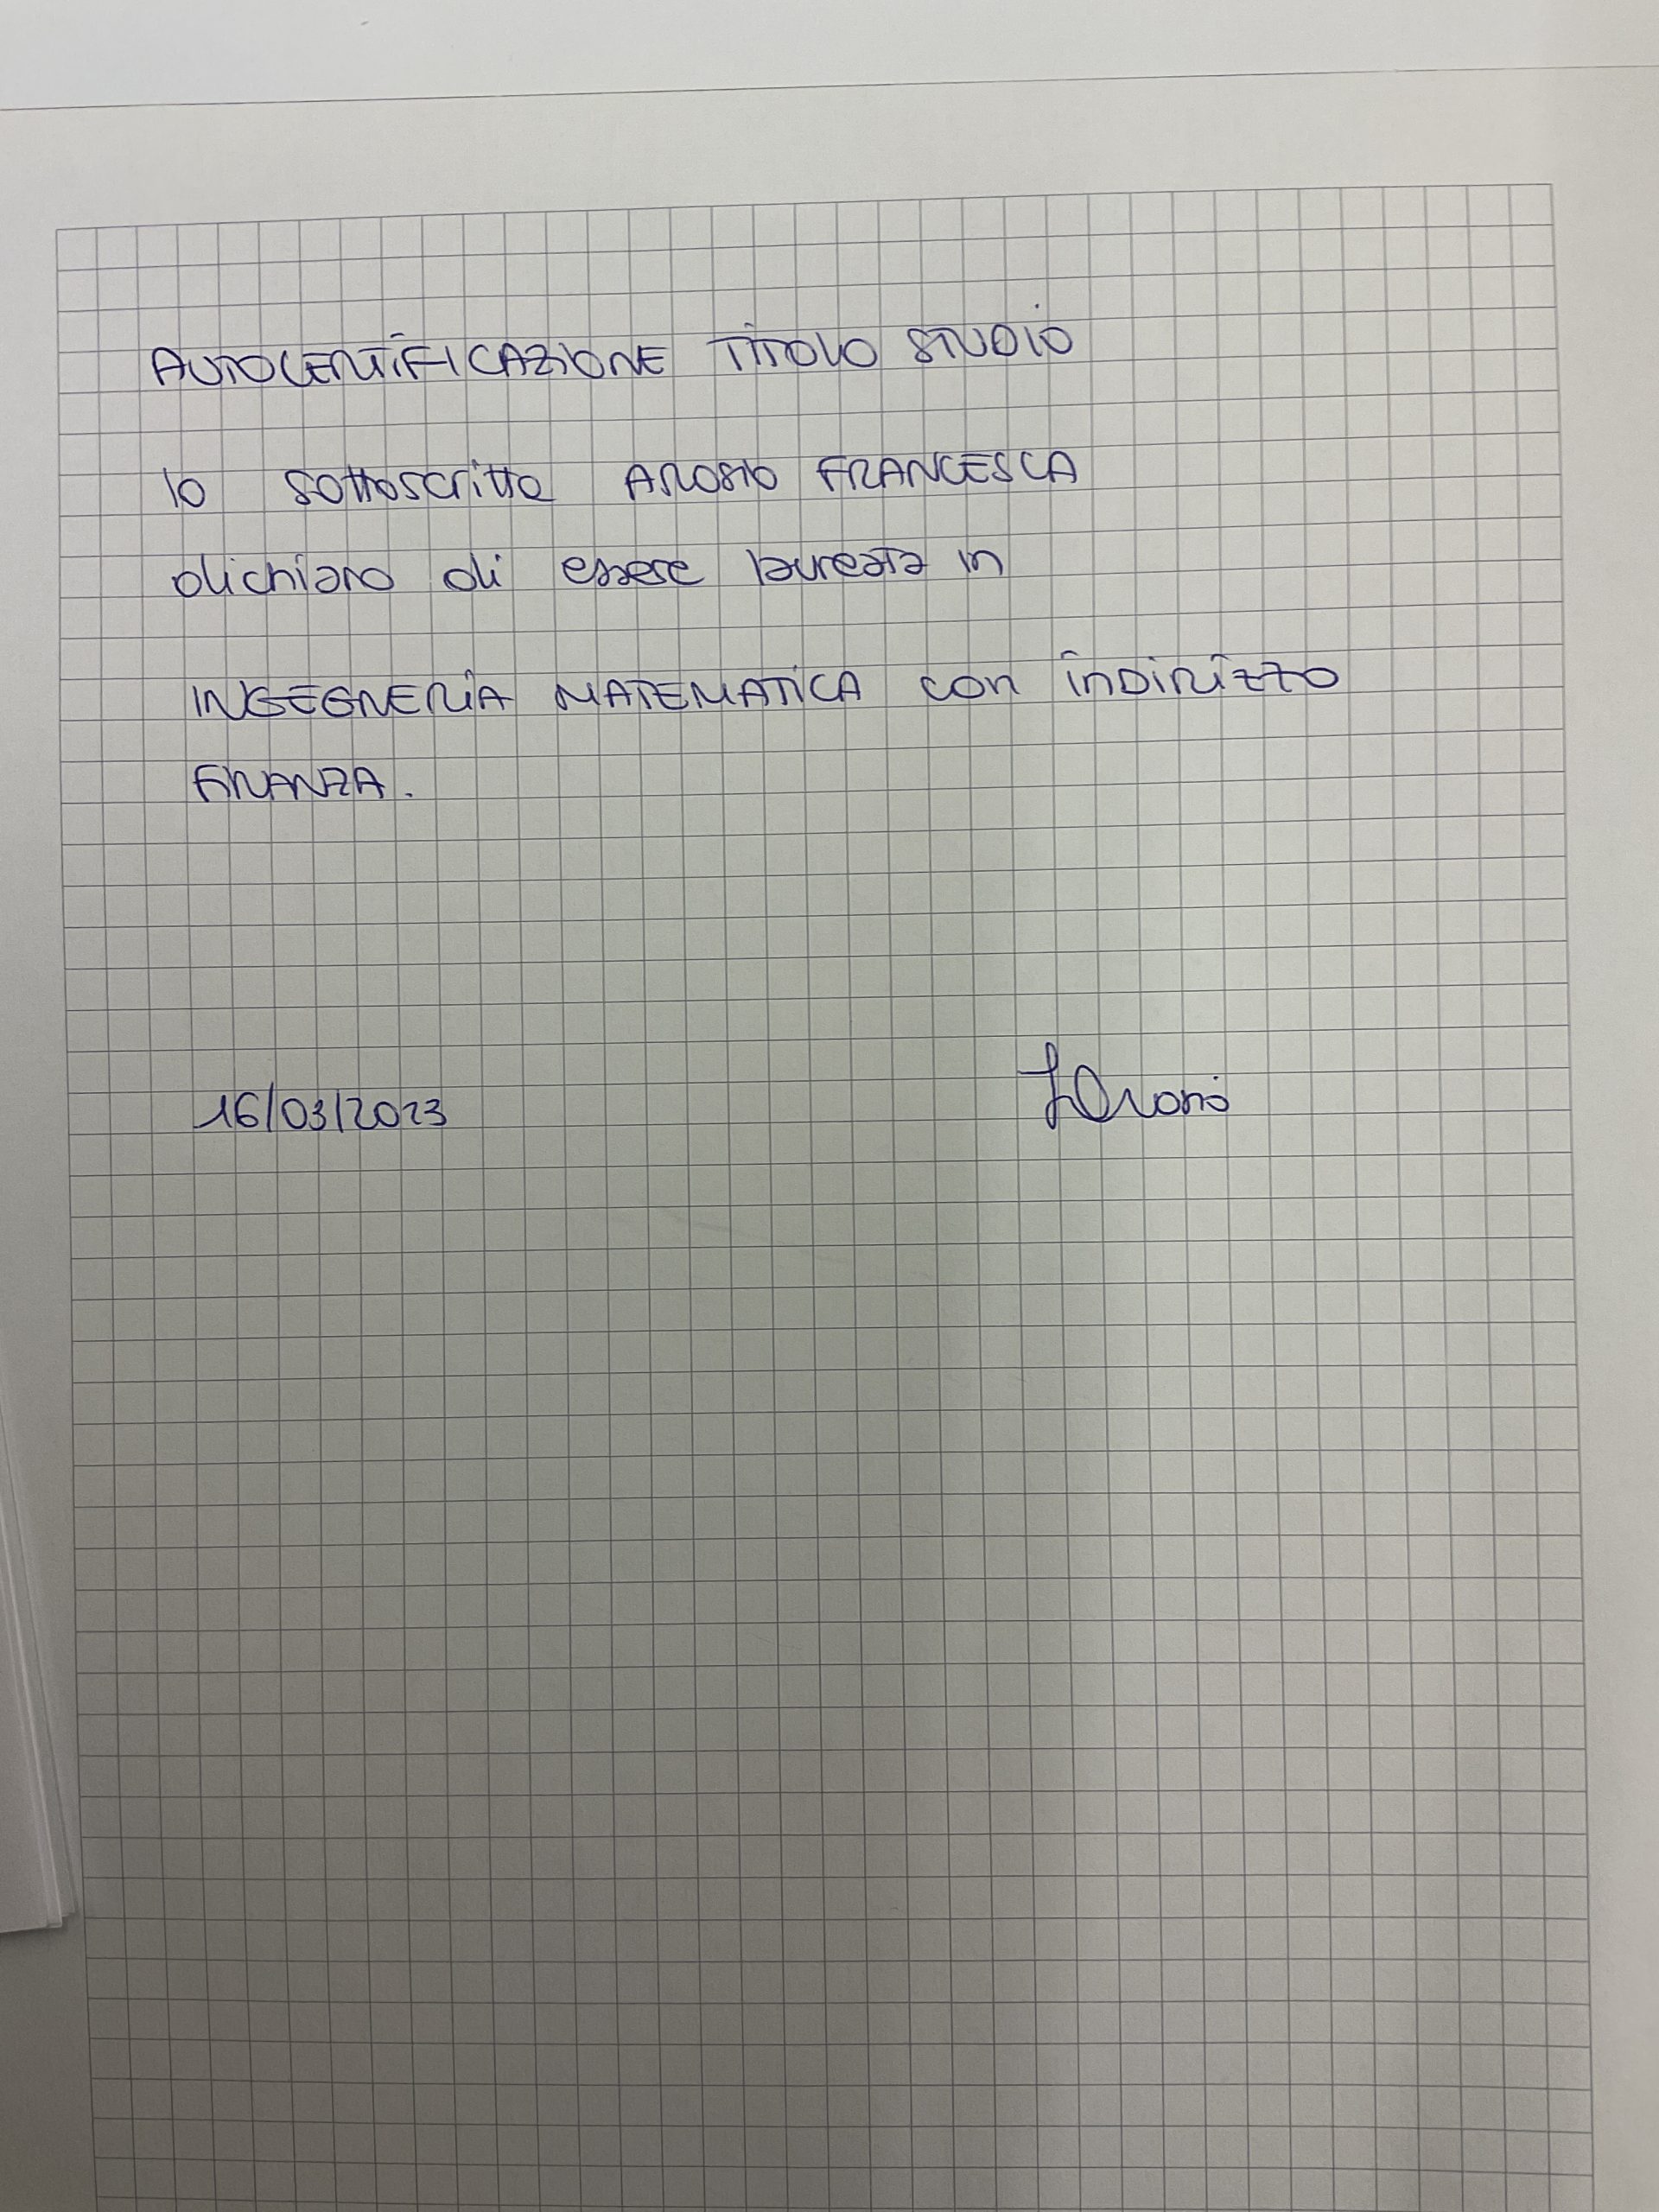 AUTOCERTIFICAZIONE TITOLO STUDIO
Io sottoscritta AROSIO FRANCESCA
dichiaro di essere laureata in
INGEGNERIA MATEMATICA con indirizzo
FINANZA.
16/03/2023